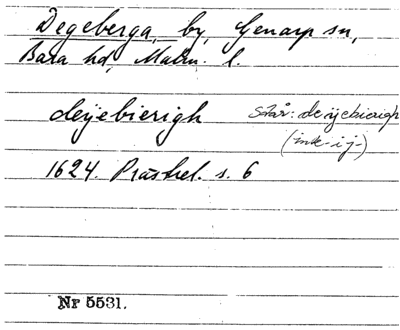 Degeberga, by, Genarp sn,
Bara hd, Malm. l.
deÿebierigh
står: deÿebierigh
(inte -ij-)
1624. Prästrel. s. 6
Nr 5531.